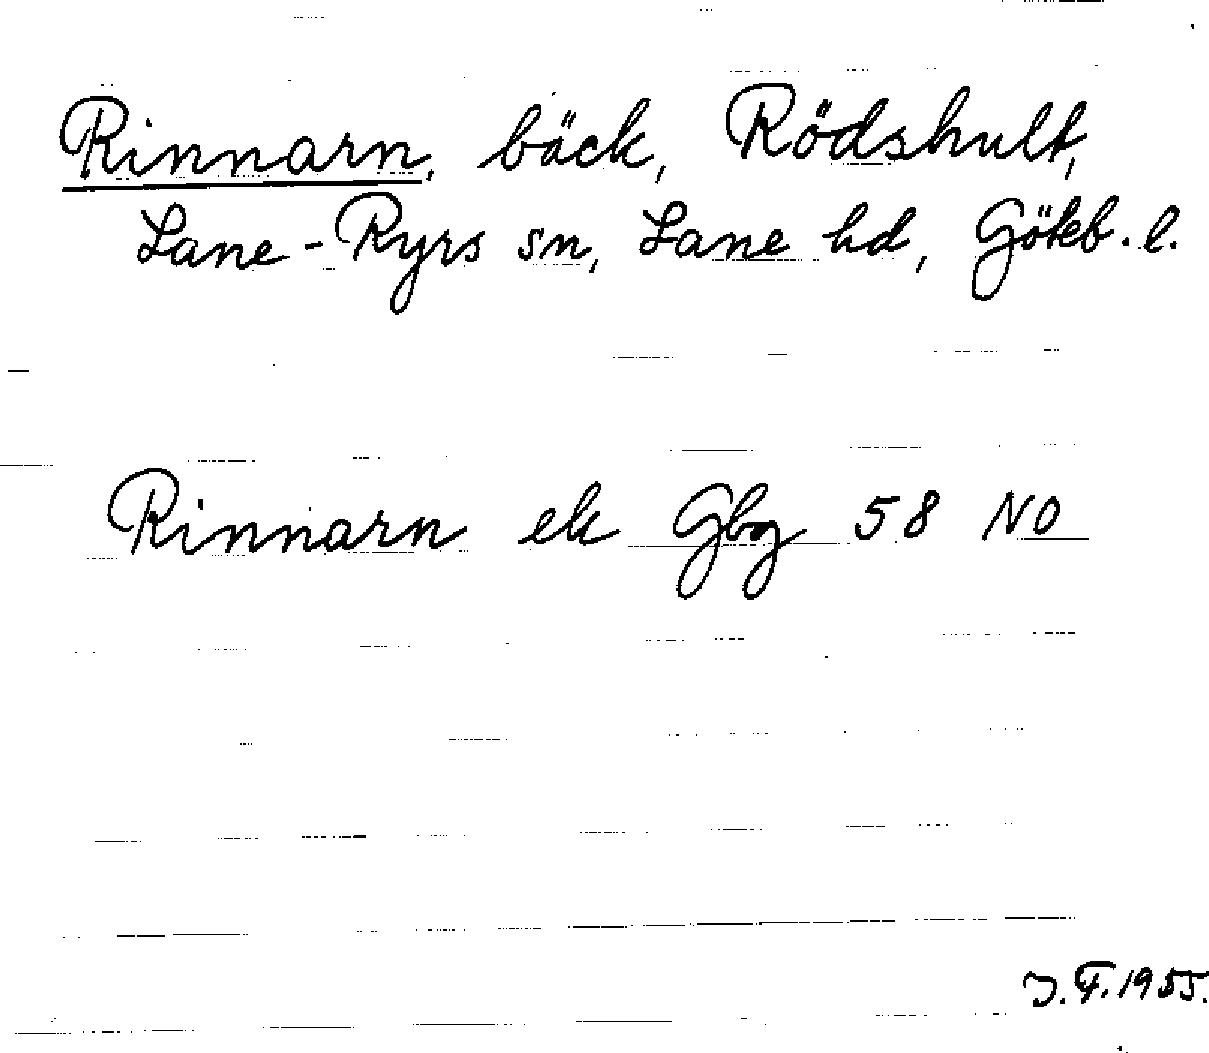 Rinnarn, bäck, Rödshult,
Lane-Ryrs sn, Lane hd, Göteb. l.
Rinnarn ek Gbg 58 NO
J.F. 1955.